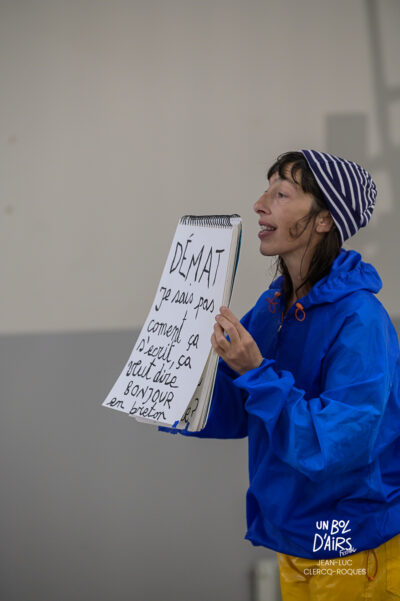 DÉMAT
je sais pas
coment ça
s'écrit, ça
veut dire
BONJOUR
en breton
UN BOL
D'AIRS
JEAN-LUC
CLERCQ-ROQUES